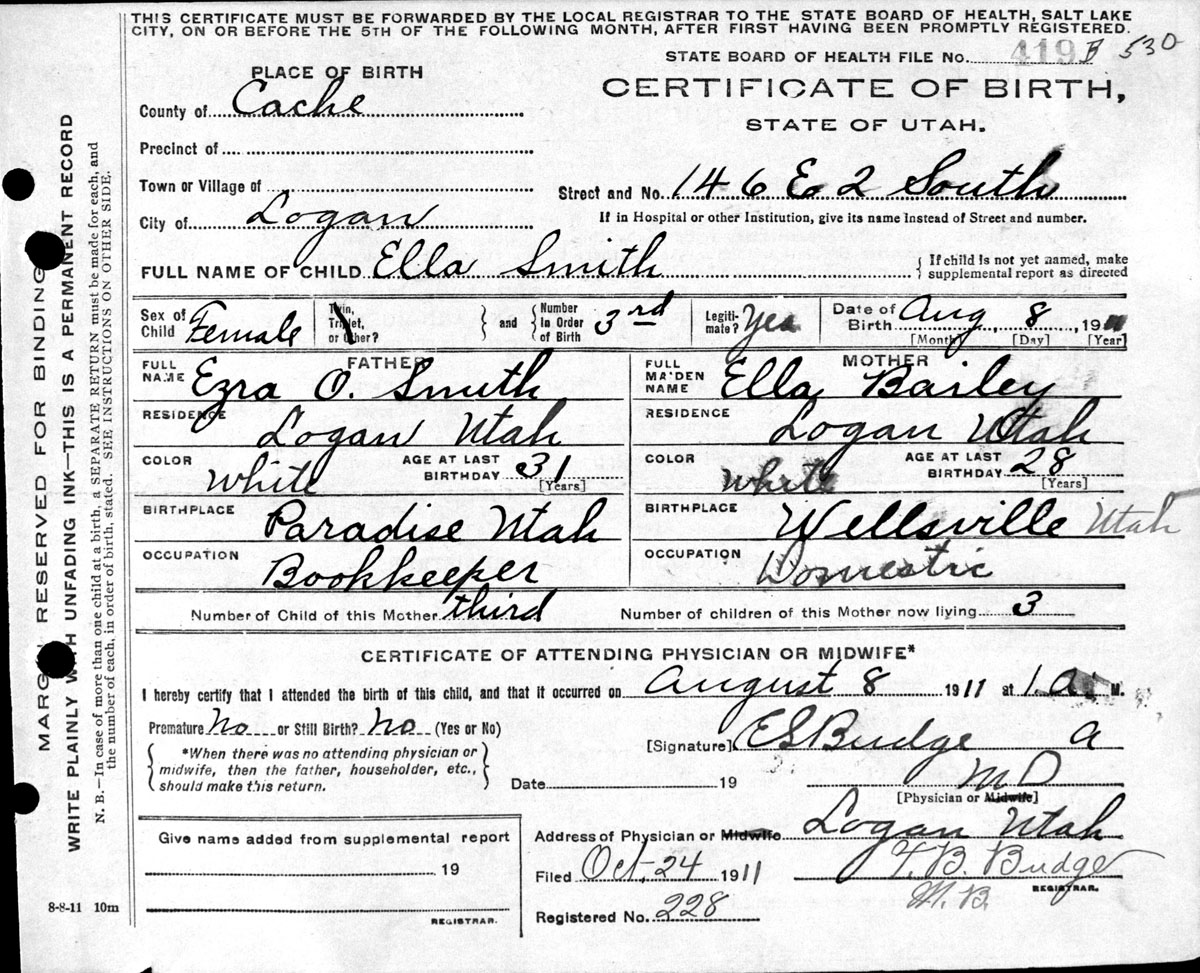 THIS CERTIFICATE MUST BE FORWARDED BY THE LOCAL REGISTRAR TO THE STATE BOARD OF HEALTH, SALT LAKE
CITY, ON OR BEFORE THE 5TH OF THE FOLLOWING MONTH, AFTER FIRST HAVING BEEN PROMPTLY REGISTERED.
STATE BOARD OF HEALTH FILE NO. 419 B 530
PLACE OF BIRTH
CERTIFICATE OF BIRTH,
STATE OF UTAH.
County of Cache
Precinct of
Town or Village of
Street and No. 146 E 2 South
City of Logan
If in Hospital or other Institution, give its name instead of Street and number.
FULL NAME OF CHILD Ella Smith
If child is not yet named, make
supplemental report as directed
Sex of Child Female
Twin, Triplet, or Other?
and
Number In Order of Birth 3rd
Legiti-mate? Yes
Date of Birth Aug 8, 1911
[Month] [Day] [Year]
FATHER
FULL NAME Ezra O. Smith
MOTHER
FULL MAIDEN NAME Ella Bailey
RESIDENCE Logan Utah
RESIDENCE Logan Utah
COLOR White
AGE AT LAST BIRTHDAY 31 [Years]
COLOR White
AGE AT LAST BIRTHDAY 28 [Years]
BIRTHPLACE Paradise Utah
BIRTHPLACE Wellsville Utah
OCCUPATION Bookkeeper
OCCUPATION Domestic
Number of Child of this Mother third
Number of children of this Mother now living 3
CERTIFICATE OF ATTENDING PHYSICIAN OR MIDWIFE*
I hereby certify that I attended the birth of this child, and that it occurred on August 8 1911 at 1 a M.
Premature no or Still Birth? no (Yes or No)
*When there was no attending physician or
midwife, then the father, householder, etc.,
should make this return.
[Signature] E S Budge a
M D
Date 19
[Physician or Midwife]
Give name added from supplemental report
19
REGISTRAR.
Address of Physician or Midwife Logan Utah
Filed Oct. 24 1911
T. B. Budge
REGISTRAR.
M. B.
Registered No. 228
8-8-11 10m
MARGIN RESERVED FOR BINDING
WRITE PLAINLY WITH UNFADING INK—THIS IS A PERMANENT RECORD
N. B.—In case of more than one child at a birth, a SEPARATE RETURN must be made for each, and
the number of each, in order of birth, stated. SEE INSTRUCTIONS ON OTHER SIDE.